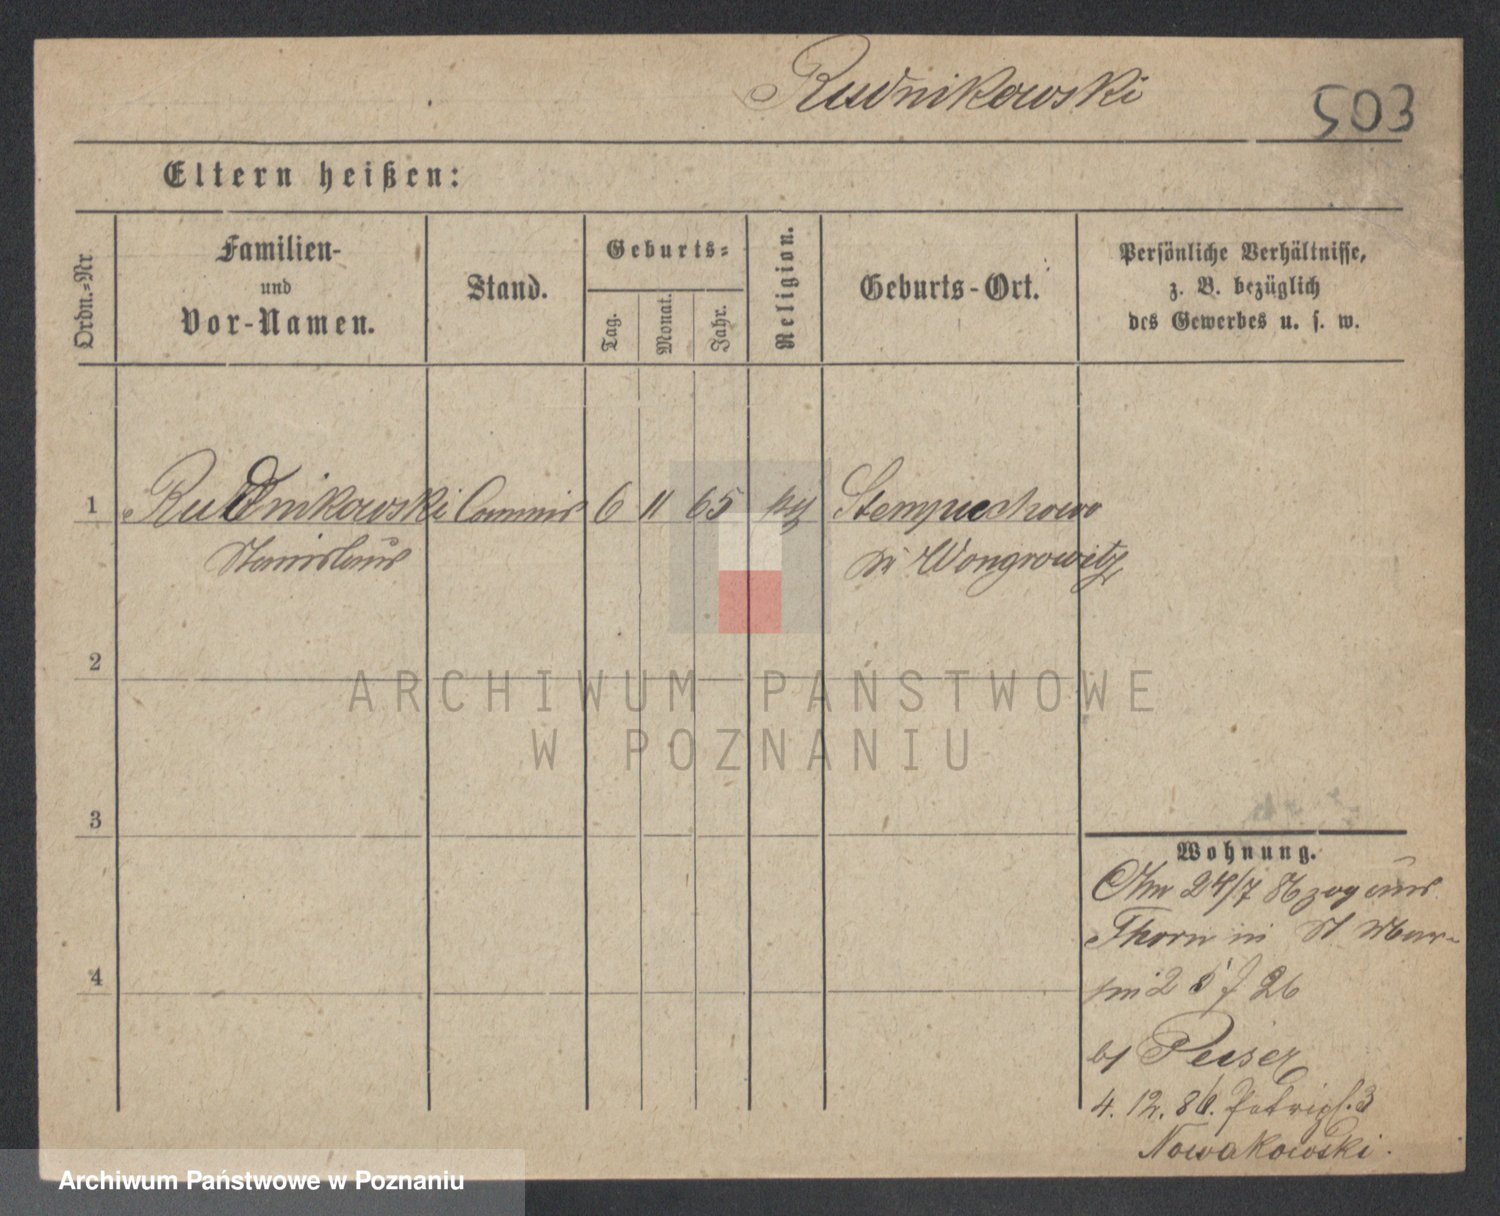 Rudnikowski
503
Eltern heißen:
Ordn.-Nr.
Familien-
und
Vor-Namen.
Stand.
Geburts-
Tag.
Monat.
Jahr.
Religion.
Geburts-Ort.
Persönliche Verhältnisse,
z. B. bezüglich
des Gewerbes u. s. w.
1 Rudnikowski Commis 6 11 65 Stempuchowo
Stanislaus Wongrowitz
2
3
4
ARCHIWUM PAŃSTWOWE
W POZNANIU
Wohnung.
24/7 86 zog aus
Thorn in St Mar-
26
Peiser
4. 12. 86. 3
Nowakowski.
Archiwum Państwowe w Poznaniu